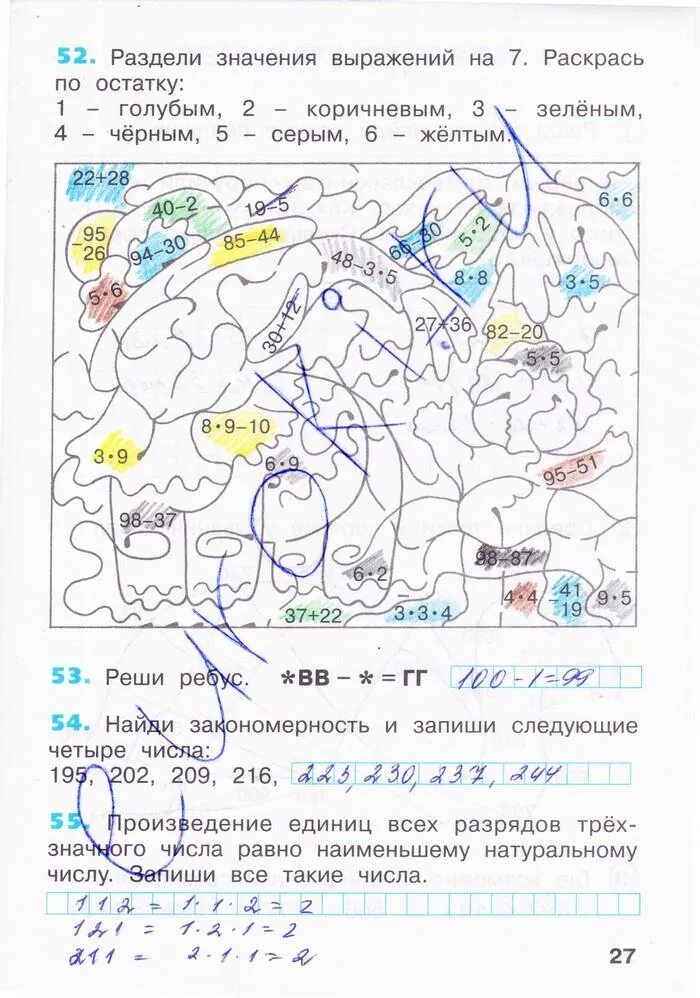 52. Раздели значения выражений на 7. Раскрась
по остатку:
1 – голубым, 2 – коричневым, 3 – зелёным,
4 – чёрным, 5 – серым, 6 – жёлтым.
22+28
6·6
40–2
19–5
–95
26
94–30
85–44
66–30
5·2
48–3·5
8·8
3·5
5·6
30+12
27+36
82–20
5·5
8·9–10
3·9
6·9
95–51
98–37
6·2
98–87
4·4
–41
19
9·5
37+22
3·3·4
53. Реши ребус. *ВВ – * = ГГ 100-1=99
54. Найди закономерность и запиши следующие
четыре числа:
195, 202, 209, 216, 223, 230, 237, 244
55. Произведение единиц всех разрядов трёх-
значного числа равно наименьшему натуральному
числу. Запиши все такие числа.
112 = 1·1·2 = 2
121 = 1·2·1 = 2
211 = 2·1·1 = 2
27